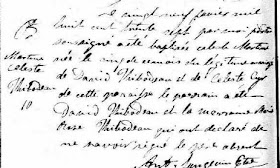 Le vingt neuf janvier mil
huit cent trente sept par moi prêtre
soussigné a été baptisée Celeste Martine
née le cinq de ce mois du légitime mariage
de David Thibodeau et de Celeste Cyr
de cette paroisse le parrain a été
David Thibodeau et la marraine
Rose Thibodeau qui ont déclaré de
ne savoir signer le père absent
Ant. Langevin Ptre
Martine
Celeste
Thibodeau
10